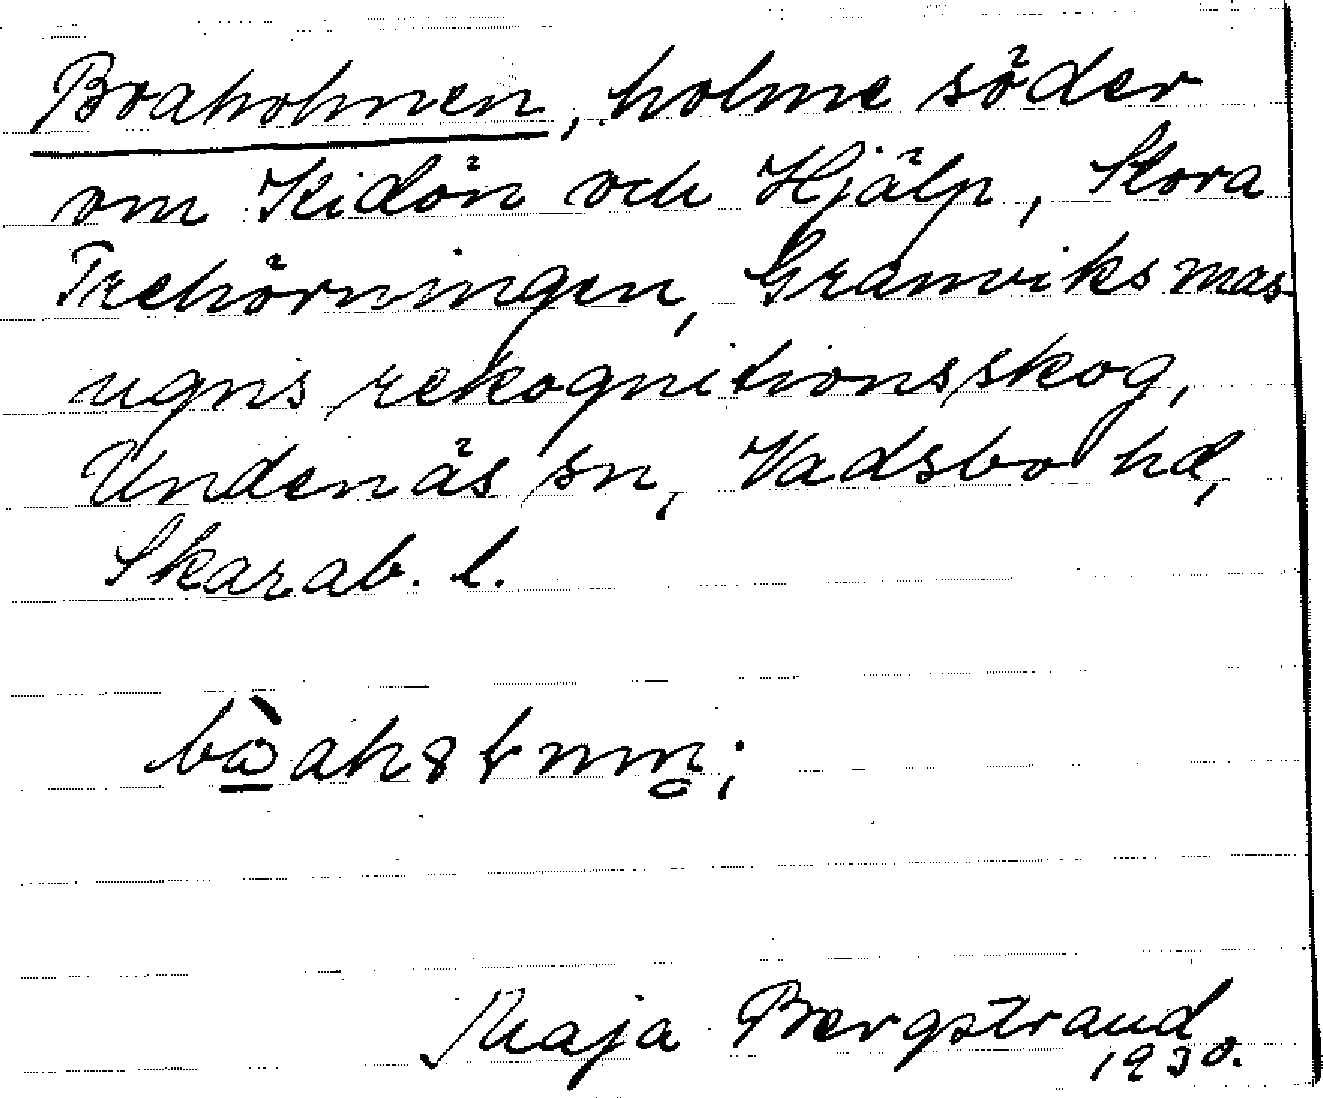 Boaholmen, holme söder
om Kidön och Hjälp, Stora
Trehörningen, Granviksmas-
ugns rekognitionsskog,
Undenäs sn, Vadsbo hd,
Skarab. l.
Maja Bergstrand
1930.